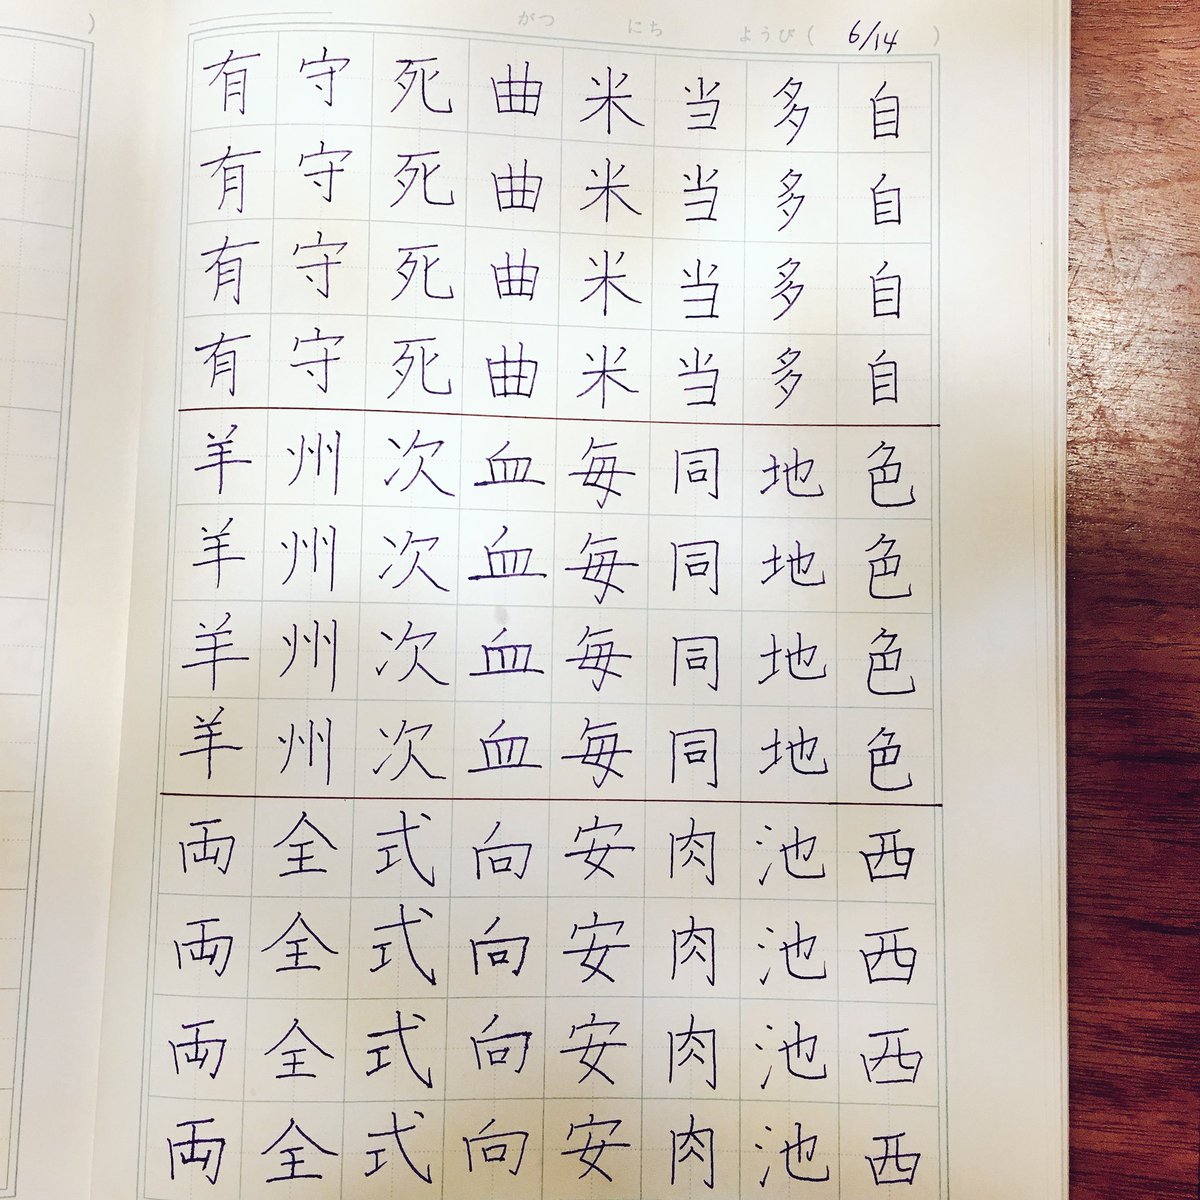 がつ にち ようび( 6/14 )
自自自自色色色色西西西西
多多多多地地地地池池池池
当当当当同同同同肉肉肉肉
米米米米毎毎毎毎安安安安
曲曲曲曲血血血血向向向向
死死死死次次次次式式式式
守守守守州州州州全全全全
有有有有羊羊羊羊両両両両
)